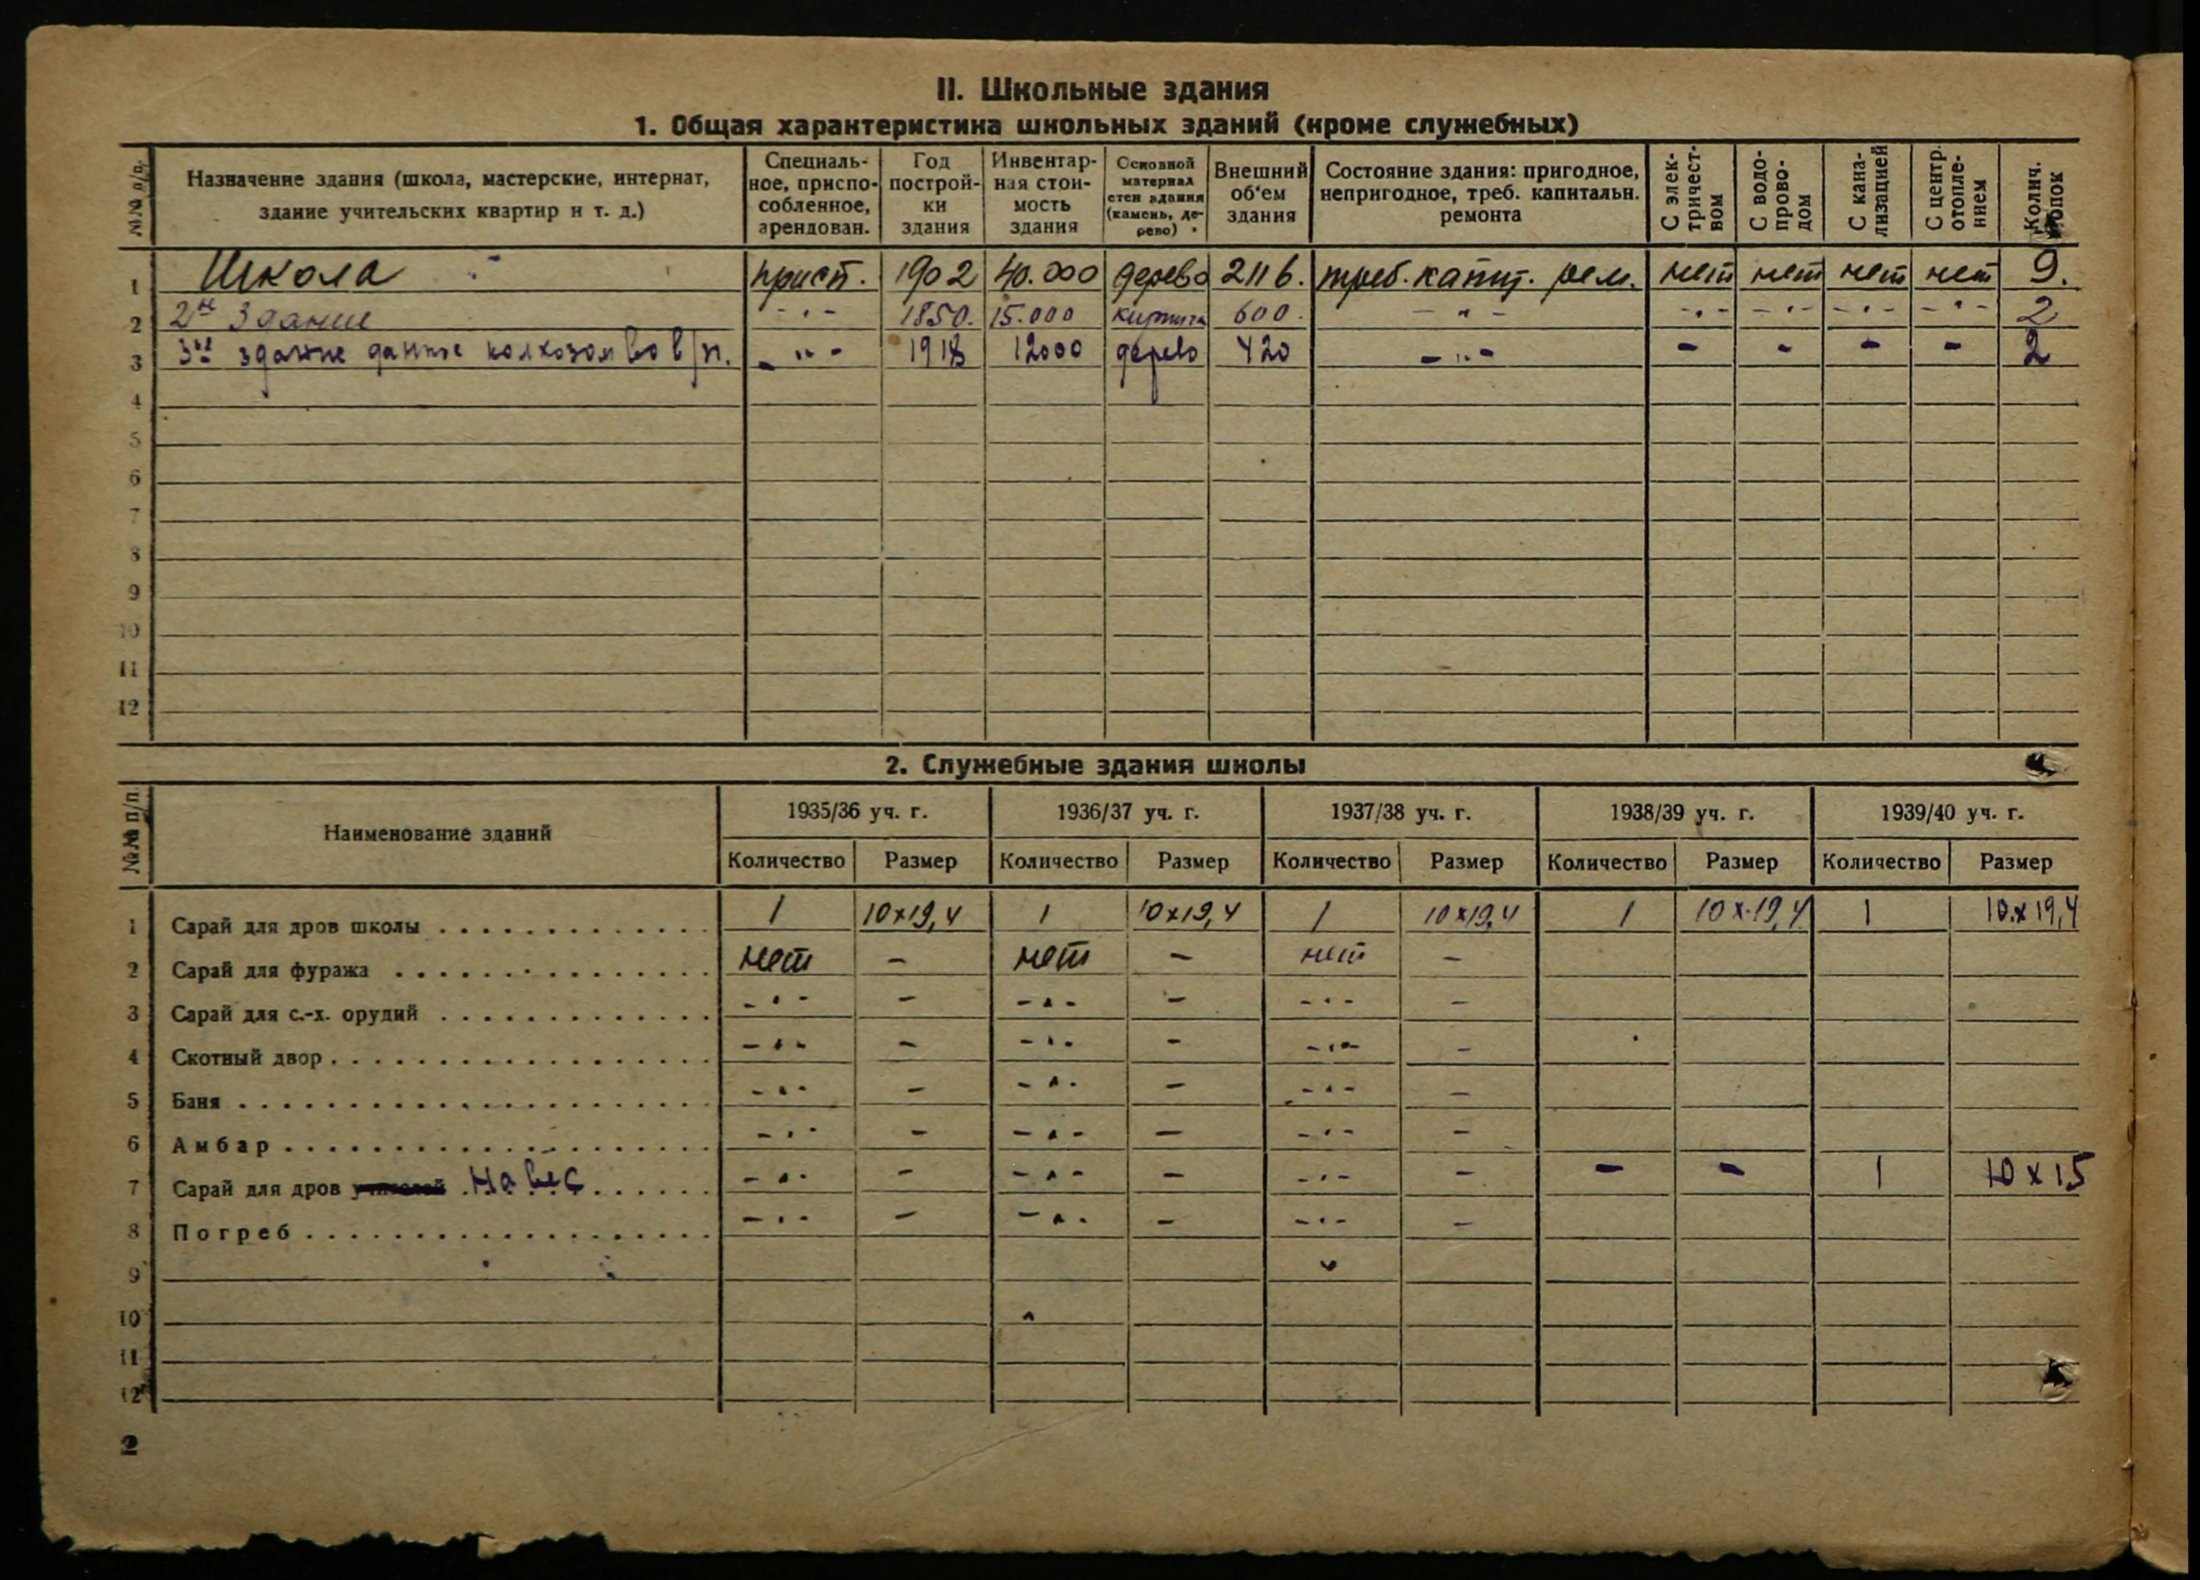 II. Школьные здания
1. Общая характеристика школьных зданий (кроме служебных)
№№ п/п. Назначение здания (школа, мастерские, интернат, здание учительских квартир и т. д.) Специальное, приспособленное, арендован. Год постройки здания Инвентарная стоимость здания Основной материал стен здания (камень, дерево) Внешний об'ем здания Состояние здания: пригодное, непригодное, треб. капитальн. ремонта С электричеством С водопроводом С канализацией С центр. отоплением Колич. топок
1 Школа присп. 1902 40.000 дерево 2116. треб. капит. рем. нет нет нет нет 9.
2 2ое Здание - " - 1850. 15.000 кирпичн 600. - " - - " - - " - - " - - " - 2
3 3ье здание данное колхозом во в/п. - " - 1918 12000 дерево 420 - " - - - - - 2
4
5
6
7
8
9
10
11
12
2. Служебные здания школы
№№ п/п. Наименование зданий 1935/36 уч. г. 1936/37 уч. г. 1937/38 уч. г. 1938/39 уч. г. 1939/40 уч. г.
Количество Размер Количество Размер Количество Размер Количество Размер Количество Размер
1 Сарай для дров школы 1 10х19,4 1 10х19,4 1 10х19,4 1 10х19,4 1 10х19,4
2 Сарай для фуража нет - нет - нет -
3 Сарай для с.-х. орудий - " - - - " - - - " - -
4 Скотный двор - " - - - " - - - " - -
5 Баня - " - - - " - - - " - -
6 Амбар - " - - - " - - - " - -
7 Сарай для дров Навес - " - - - " - - - " - - - - 1 10х15
8 Погреб - " - - - " - - - " - -
9
10
11
12
2